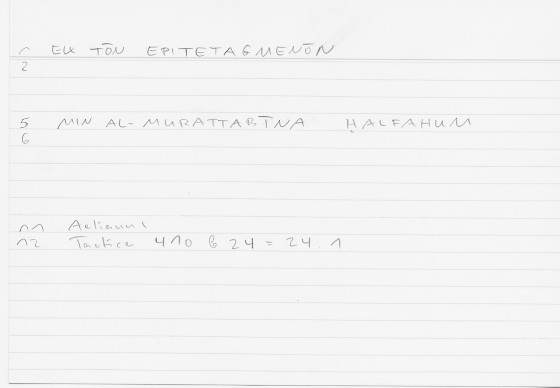 1 EK TŌN EPITETAGMENŌN
2
5 MIN AL-MURATTABĪNA ḪALFAHUM
6
11 Aelianus
12 Tactica 410 b 24 = 24.1